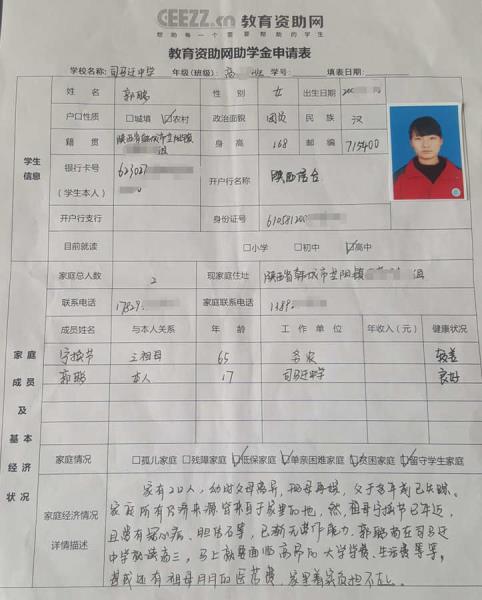 GEEZZ.cn 教育资助网
帮助每一个需要帮助的学生
教育资助网助学金申请表
学校名称: 司马迁中学 年级(班级): 高 学号: 填表日期:
姓名 郭聪 性别 女 出生日期
户口性质 □城镇 ☑农村 政治面貌 团员 民族 汉
籍贯 陕西省韩城市芝阳镇 身高 168 邮编 715400
学生信息
银行卡号 (学生本人) 623027 开户行名称 陕西信合
开户行支行 身份证号 610581200
目前就读 □小学 □初中 ☑高中
家庭总人数 2 现家庭住址 陕西省韩城市芝阳镇 组
联系电话 17829 家庭联系电话 1389
成员姓名 与本人关系 年龄 工作单位 年收入(元) 健康状况
祖母 65 务农 较差
郭聪 本人 17 司马迁中学 良好
家庭成员及基本经济状况
家庭情况 □孤儿家庭 □残障家庭 ☑低保家庭 ☑单亲困难家庭 ☑贫困家庭 ☑留守学生家庭
家庭经济情况详情描述
家有2口人,幼时父母离异,祖母再嫁,父于多年前已失踪。
家庭所有经济来源皆来自于家里的地,然,祖母 已年迈,
且患有冠心病、胆结石等,已渐无劳作能力.郭聪尚在司马迁
中学就读高三,马上就要面临高昂的大学学费、生活费等等,
并且还有祖母月月的医药费,家里着实负担不起。